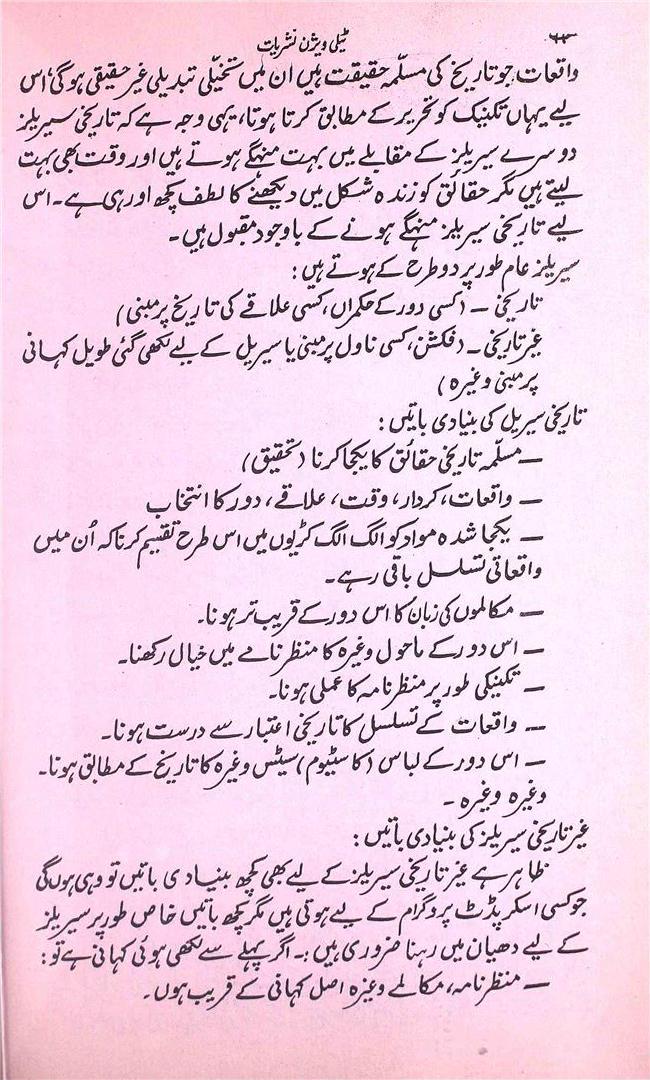 ٹیلی ویژن نشریات
واقعات جو تاریخ کی مسلّمہ حقیقت ہیں ان میں تخیّلی تبدیلی غیر حقیقی ہوگی، اس
لیے یہاں تکنیک کو تحریر کے مطابق کرتا ہوتا، یہی وجہ ہے کہ تاریخی سیریلز
دوسرے سیریلز کے مقابلے میں بہت منہگے ہوتے ہیں اور وقت بھی بہت
لیتے ہیں مگر حقائق کو زندہ شکل میں دیکھنے کا لطف کچھ اور ہی ہے۔ اس
لیے تاریخی سیریلز منہگے ہونے کے باوجود مقبول ہیں۔
سیریلز عام طور پر دو طرح کے ہوتے ہیں:
تاریخی ــ (کسی دور کے حکمراں، کسی علاقے کی تاریخ پر مبنی)
غیر تاریخی ــ (فکشن، کسی ناول پر مبنی یا سیریل کے لیے لکھی گئی طویل کہانی
پر مبنی وغیرہ)
تاریخی سیریل کی بنیادی باتیں:
ــ مسلّمہ تاریخی حقائق کا یکجا کرنا (تحقیق)
ــ واقعات، کردار، وقت، علاقے، دور کا انتخاب
ــ یکجا شدہ مواد کو الگ الگ کڑیوں میں اس طرح تقسیم کرنا کہ اُن میں
واقعاتی تسلسل باقی رہے۔
ــ مکالموں کی زبان کا اس دور کے قریب تر ہونا۔
ــ اس دور کے ماحول وغیرہ کا منظرنامے میں خیال رکھنا۔
ــ تکنیکی طور پر منظرنامہ کا عملی ہونا۔
ــ واقعات کے تسلسل کا تاریخی اعتبار سے درست ہونا۔
ــ اس دور کے لباس (کاسٹیوم) سیٹس وغیرہ کا تاریخ کے مطابق ہونا۔
وغیرہ وغیرہ ۔
غیر تاریخی سیریلز کی بنیادی باتیں:
ظاہر ہے غیر تاریخی سیریلز کے لیے بھی کچھ بنیادی باتیں تو وہی ہوں گی
جو کسی اسکرپٹڈ پروگرام کے لیے ہوتی ہیں مگر کچھ باتیں خاص طور پر سیریلز
کے لیے دھیان میں رہنا ضروری ہیں:۔ اگر پہلے سے لکھی ہوئی کہانی ہے تو:
ــ منظرنامہ، مکالمے وغیرہ اصل کہانی کے قریب ہوں۔